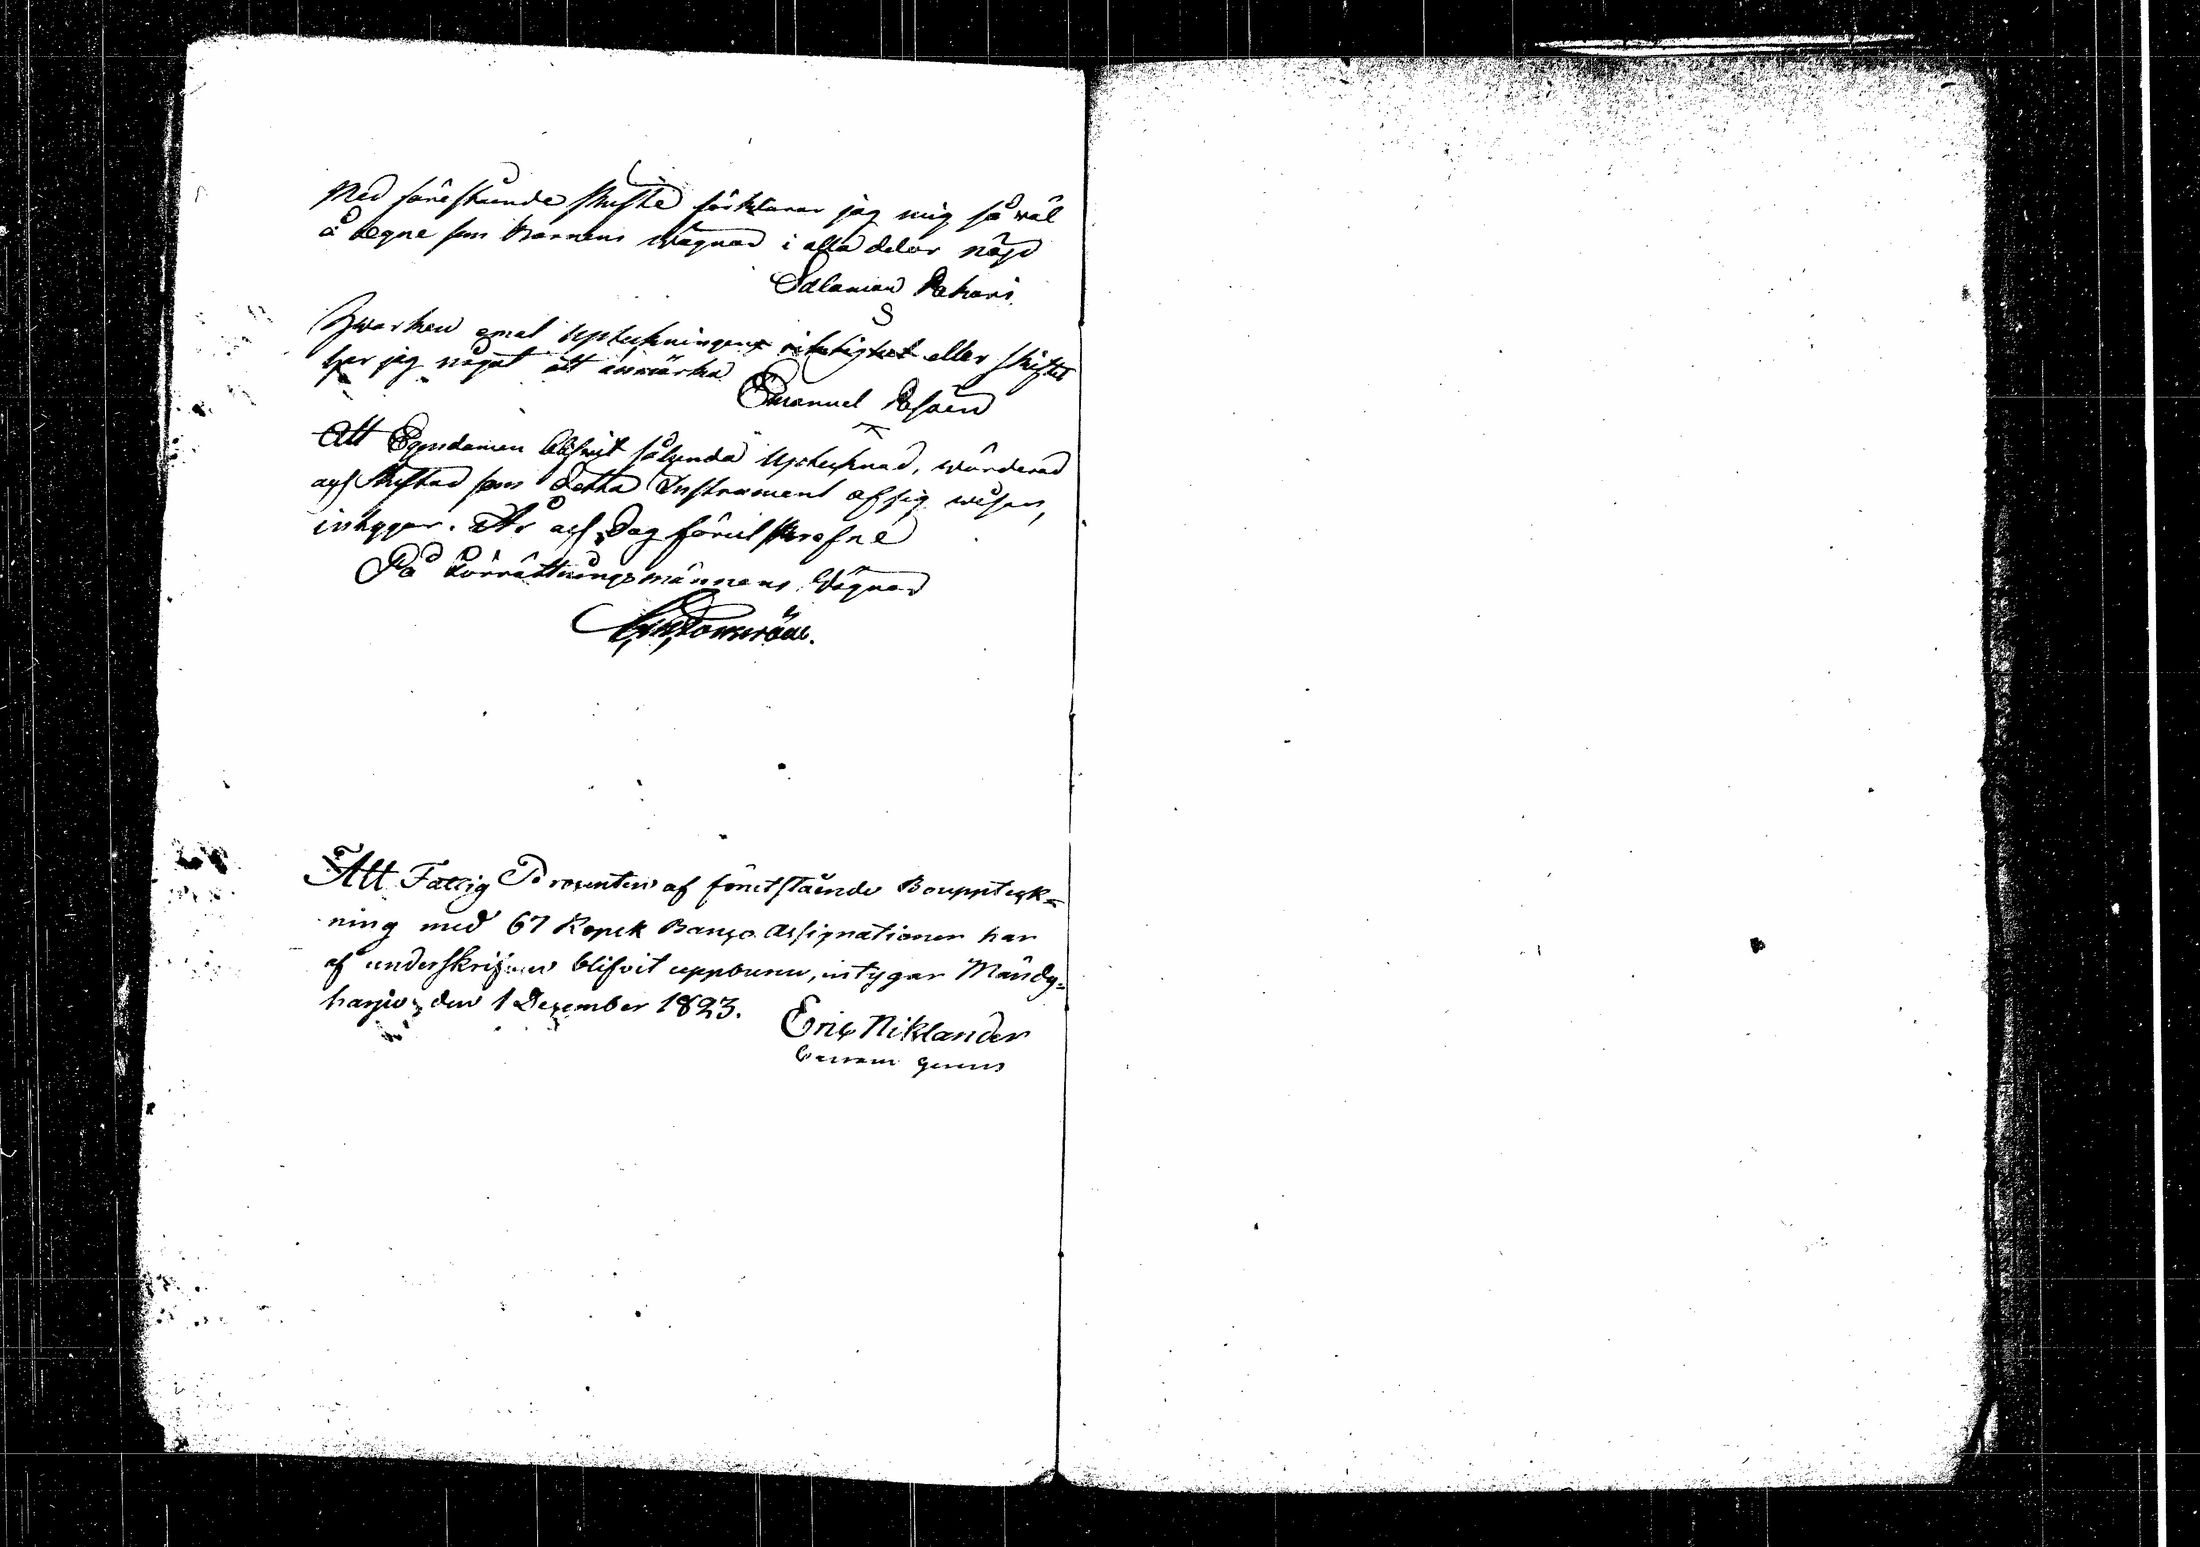 Med förestående skifte förklarar jag mig så wäl
å egne som Barnens wägnar i alla delar nögd
Salamon
S
Hwarken emot Upteckningens riktighet eller skiftet
har jag något att anmärka
Emanuel
Att Egendomen blifwit sålunda Uptecknad, wärderad
och skiftad som detta Instrument af sig wisar,
intygar. År och Dag förut skrefne
På Förrättningsmännens Wägnar
Att Fattig Procenten af förestående Bouppteck-
ning med 67 Kopek Banco Assignationer har
af underskrifven blifvit uppburen, intygar Mändy-
harju den 1 December 1823.
Eric Niklander
Curam gerens